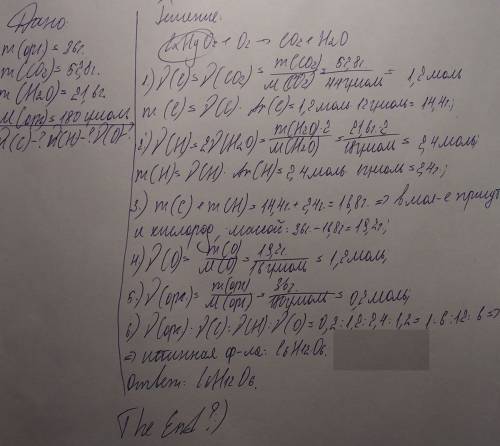 Дано:
m(орг) = 36г.
m(CO2) = 52,8г.
m(H2O) = 21,6г.
M(орг) = 180 г/моль
ν(C)-? ν(H)-? ν(O)-?
Решение:
CxHyOz + O2 → CO2 + H2O
1) ν(C) = ν(CO2) = m(CO2)/M(CO2) = 52,8г/44г/моль = 1,2 моль
m(C) = ν(C) · Ar(C) = 1,2 моль · 12 г/моль = 14,4г;
2) ν(H) = 2ν(H2O) = m(H2O)·2/M(H2O) = 21,6г·2/18г/моль = 2,4 моль;
m(H) = ν(H) · Ar(H) = 2,4 моль · 1г/моль = 2,4г;
3) m(C) + m(H) = 14,4г. + 2,4г = 16,8г. => в мол-е присут
и кислород, массой: 36г - 16,8г = 19,2г;
4) ν(O) = m(O)/M(O) = 19,2г/16г/моль = 1,2 моль,
5) ν(орг) = m(орг)/M(орг) = 36г/180г/моль = 0,2 моль;
6) ν(орг) : ν(C) : ν(H) : ν(O) = 0,2 : 1,2 : 2,4 : 1,2 = 1 : 6 : 12 : 6 =>
=> истинная ф-ла: C6H12O6.
Ответ: C6H12O6.
The End?)